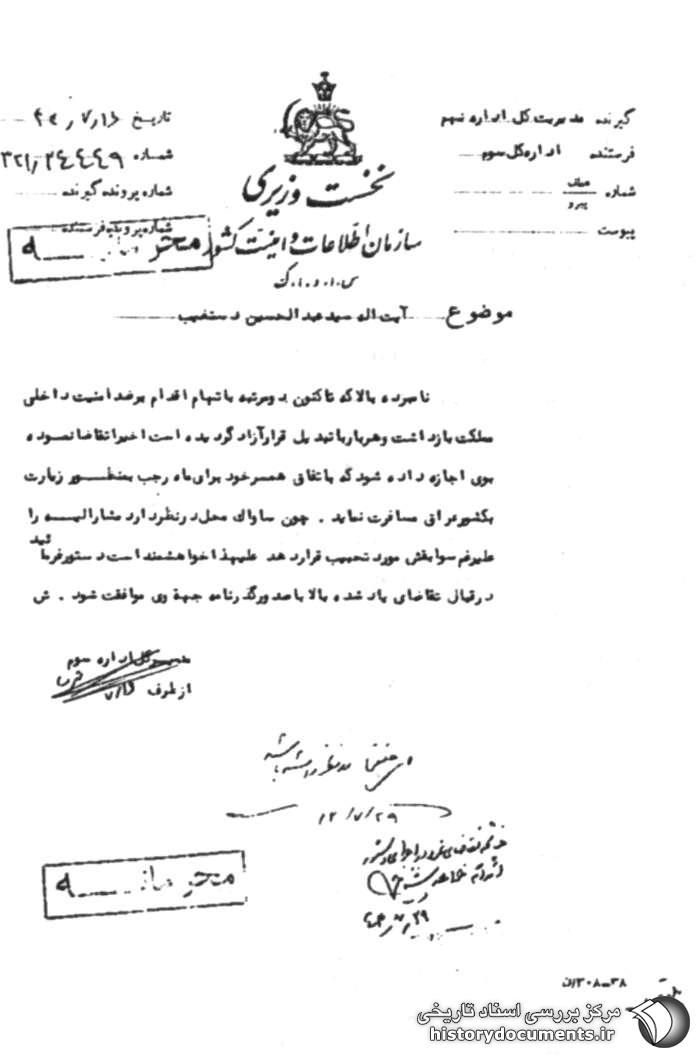 گیرنده مدیریت کل اداره نهم
فرستنده اداره کل سوم
شماره عطف پیرو
پیوست
نخست وزیری
سازمان اطلاعات و امنیت کشور
س.ا.و.ا.ک
تاریخ
شماره ۳۲۱/۲۴۴۴۹
شماره پرونده گیرنده
شماره پرونده فرستنده
محرمانه
موضوع آیت اله سید عبدالحسین دستغیب
نامبرده بالا که تاکنون دو مرتبه باتهام اقدام بر ضد امنیت داخلی
مملکت بازداشت و هر بار با تبدیل قرار آزاد گردیده است اخیرا تقاضا نموده
بوی اجازه داده شود که باتفاق همسر خود برای ماه رجب بمنظور زیارت
بکشور عراق مسافرت نماید . چون ساواک محل در نظر دارد مشارالیه را
علیرغم سوابقش مورد تحبیب قرار دهد علیهذا خواهشمند است دستور فرمائید
در قبال تقاضای یاد شده بالا با صدور گذرنامه جهة وی موافقت شود . ش
مدیر کل اداره سوم
از طرف ۷/۱۶
۱۲/۷/۲۹
محرمانه
۳۸-۳۰۸/ن
مرکز بررسی اسناد تاریخی
historydocuments.ir